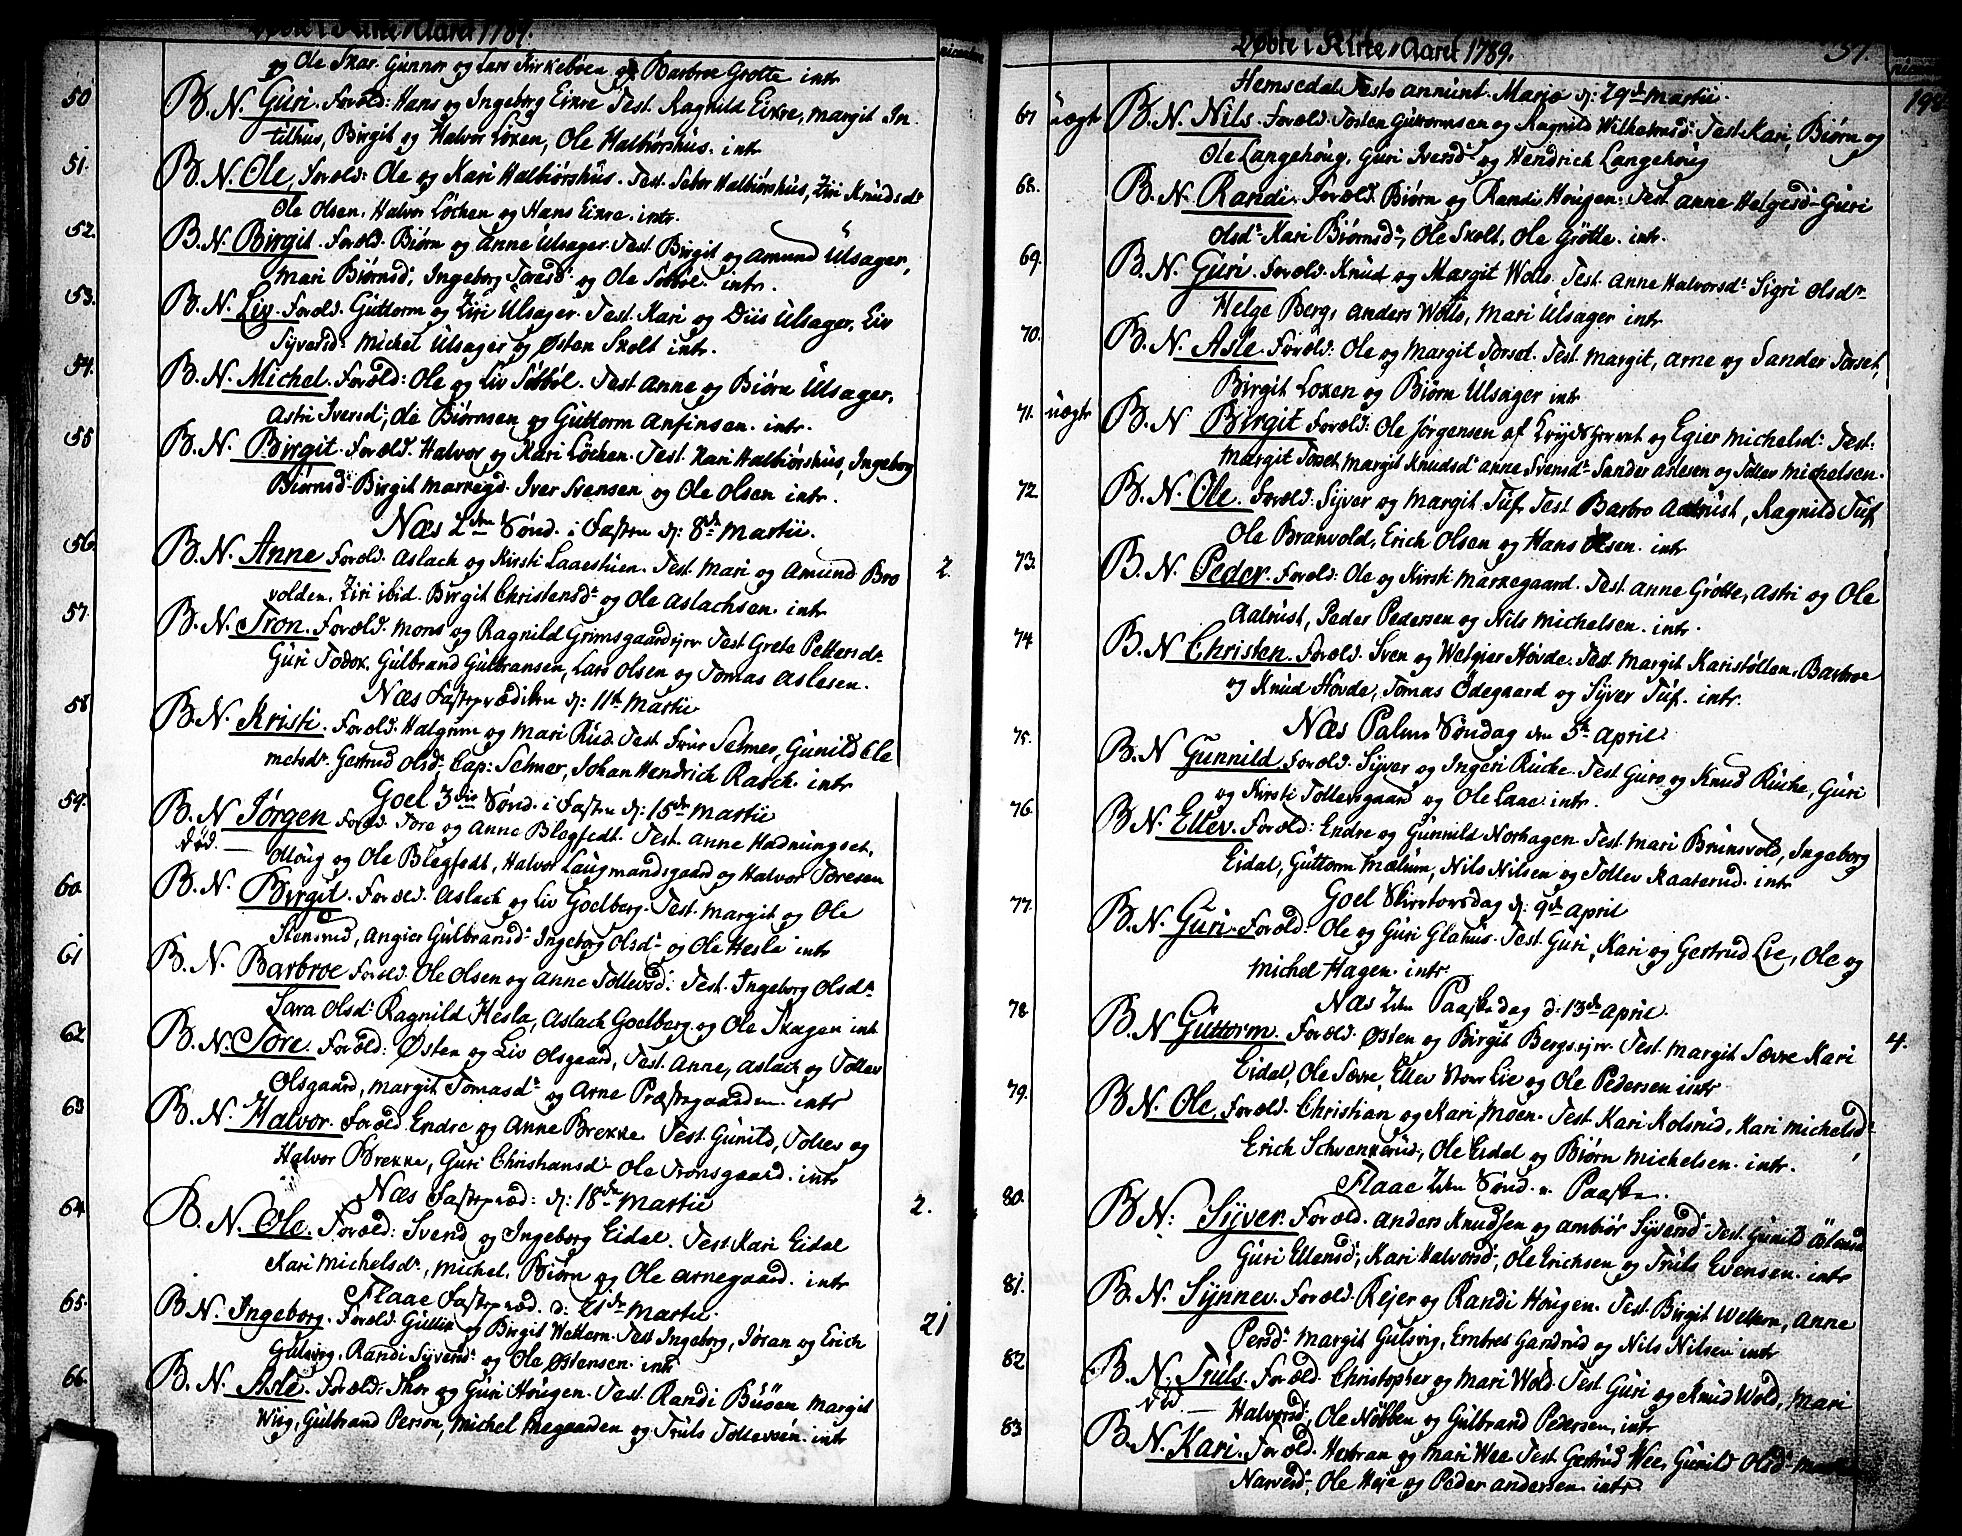 Døbte i Kirke, Aaret 1789.
og Ole Skar. Gunnor og Lars Kirkebøen og Barbroe Grøtte intr
50 B. N. Guri. Foræld: Hans og Ingeborg Eikre Test. Ragnild Eikre, Margit In-
tilhus, Birgit og Halvor Løken, Ole Halbiørshus. intr
51. B. N. Ole, Foræld: Ole og Kari Halbiørshus. Test. Halbiørshus, Ziri Knudsdr
Ole Olsen, Halvor Løchen og Hans Eikre. intr.
52. B. N. Birgit. Foræld. Biørn og Anne Ulsager. Test. Birgit og Amund Ulsager,
Mari Biørnsdr, Ingeborg Toresdr og Ole Søbøl. intr.
53. B. N. Liv. Foræld. Guttorm og Ziri Ulsager. Test. Kari og Diis Ulsager, Liv
Syversdr Michel Ulsager og Østen Skolt intr.
54. B. N. Michel. Foræld: Ole og Liv Søbøl. Test Anne og Biørn Ulsager,
Astri Iversdr, Ole Biørnsen og Guttorm Anfinsen. intr.
55 B. N. Birgit. Foræld. Halvor og Kari Løcken. Test. Kari Halbiørshus, Ingeborg
Biørnsdr Birgit Markegd. Iver Svensen og Ole Olsen intr.
Næs 2den Sønd. i Fasten d: 8de Martii.
56 B. N. Anne Foræld. Aslach og Kirsti Laaestuen. Test. Mari og Amund Bro 2.
volden, Ziri ibid. Birgit Christensdr og Ole Aslachsen. intr
57. B. N. Tron. Foræld. Mons og Ragnild Grimsgaardejer Test Grete Pettersdr
Guri Todox, Gulbrand Gulbransen, Lars Olsen og Tomas Aslesen.
Næs Fasteprædiken d: 11te Martii
58 B. N. Kristi. Foræld. Halgrim og Mari Rud. Test. Frue Selmer, Gunild Cle
metsdr. Gertrud Olsdr, Cap: Selmer, Johan Hendrich Rasch. intr
Goel 3die Sønd. i Fasten d: 15de Martii
59. B. N Jørgen Foræld. Tore og Anne Blegfedt. Test. Anne Hadningset,
død. — Moug og Ole Blegfedt, Halvor Laugmandsgaard og Halvor Toresen
60. B. N. Birgit. Foræld. Aslach og Liv Goelberg. Test. Margit og Ole
Stensrud, Angier Gulbransdr Ingeborg Olsdr og Ole Hesla intr
61 B. N. Barbroe Foræld. Ole Olsen og Anne Tollevsd: Test. Ingeborg Olsdr
Sara Olsdr Ragnild Hesla, Aslach Goelberg og Ole Skagen int
62 B. N. Tore. Foræld: Østen og Liv Olsgaard, Test. Anne, Aslach og Tollev
Olsgaard, Margit Tomasdr og Arne Præstegaarden. intr
63 B. N. Halvor. Foræld. Endre og Anne Brekke Test. Gunild, Tollev og
Halvor Brekke, Guri Christiansdr Ole Tronsgaard. intr
Næs Fastepræd: d: 18de Martii
64 B. N. Ole. Foræld: Svend og Ingeborg Eidal. Test. Kari Eidal 2.
Kari Michelsdr, Michel, Biørn og Ole Arnegaard. intr
Flaae Fastepræd. d: 21de Martii
65. B. N. Ingeborg. Foræld. og Birgit Wettern. Test Ingeborg, Jøran og Erich 21
Gulsvig, Randi Syversdr og Ole Østensen. intr
66. B. N. Asle. Foræld: Thor og Guri Hougen. Test. Randi Buøen Margit
Wiig, Gulbrand Person, Michel og Truls Tollevsen. intr
Døbte i Kirke, Aaret 1789. 57.
Hemsedal Festo annunt. Mariæ d: 29de Martii.
67 uægte B. N. Nils. Foræld. Tosten Guttormsen og Ragnild Wilhelmsdr. Test. Kari, Biørn og
Ole Langehoug, Guri Iversdr og Hendrich Langehoug
68. B. N. Randi. Foræld. Biørn og Randi Hougen. Test. Anne Helgesdr Guri
Olsdr Kari Biørnsdr, Ole Skolt, Ole Grøtte. intr.
69. B. N. Guri. Foræld. Knud og Margit Wolls. Test. Anne Halvorsdr Sigri Olsdr
Helge Berg, Anders Wolls, Mari Ulsager intr
70. B. N. Asle. Foræld. Ole og Margit Torset. Test. Margit, Arne og Sander Torset,
Birgit Loken og Biørn Ulsager intr
71. uægte B. N Birgit Foræld: Ole Jørgensen af og Egier Michelsdr. Test:
Margit Torset, Margit Knudsdr Anne Svensdr Sander Aslesen og Tollev Michelsen.
72 B. N. Ole. Foræld: Syver og Margit Tuf Test Barbro Aalrust, Ragnild Tuf
Ole Branvold, Erich Olsen og Hans Olsen. intr
73. B. N. Peder. Foræld: Ole og Kirsti Markegaard. Test. Anne Grøtte, Astri og Ole
Aalrust, Peder Pedersen og Nils Michelsen. intr.
74 B. N Christen. Foræld. Sven og Welgier Hovde. Test. Margit Karistøllen, Barbroe
og Knud Hovde, Tomas Ødegaard og Syver Tuf. intr.
Næs Palme Søndag den 5te April
75. B. N Gunnild. Foræld. Syver og Ingeri Ruche. Test. Guro og Knud Ruche, Guri
og Kirsti Tollevsgaard og Ole Laae. intr.
76. B. N. Ellev. Foræld: Endre og Gunnild Norhagen. Test. Mari Brunsvold, Ingeborg
Eidal, Guttorm Mælum, Nils Nilsen og Tollev Kaaterud. intr
Goel Skiertorsdag d: 9de April
77. B. N. Guri. Foræld: Ole og Guri Glahus. Test. Guri, Kari og Gertrud Lie, Ole og
Michel Hagen. intr.
Næs 2den Paaskedag d: 13de April.
78 B. N Guttorm. Foræld. Østen og Birgit Bergsejer. Test. Margit Sævre Kari 4.
Eidal, Ole Sævre, Ellev Store Lie og Ole Pedersen intr
79. B. N. Ole, Foræld. Christian og Kari Moen. Test. Kari Kolsrud, Kari Michelsdr
Erich Schvenkerud, Ole Eidal og Biørn Michelsen. intr.
Flaae 2den Sønd. e. Paaske.
80. B. N. Syver. Foræld. Anders Knudsen og Ambiør Syversdr Test. Gunild Østensdr
Guri Ellensdr, Kari Halvorsdr, Ole Erichsen og Truls Evensen. intr
81. B. N. Synnev. Foræld. Rejer og Randi Hougen. Test. Birgit Wettern, Anne
Persdr Margit Gulsvig, Embret Gandrud og Nils Nilsen intr
82 B. N. Truls. Foræld. Christopher og Mari Wold. Test Guri og Knud Wold, Mari
død. — Halvorsdr, Ole Nøbben og Gulbrand Pedersen, intr
83 B. N. Kari. Foræld. Herbran og Mari Wee Test. Gertrud Wee, Gunild Olsdr
Narvesdr, Ole Heje og Peder Andersen. intr